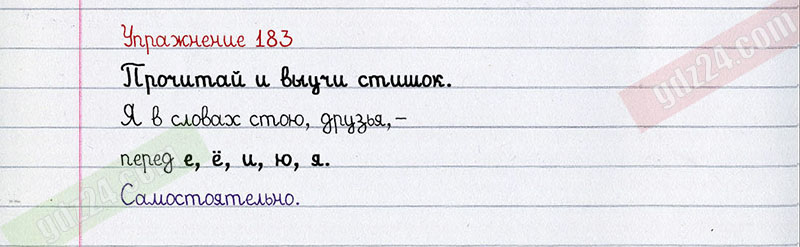 Упражнение 183
Прочитай и выучи стишок.
Я в словах стою, друзья,–
перед е, ё, и, ю, я.
Самостоятельно.
gdz24.com
gdz24.com